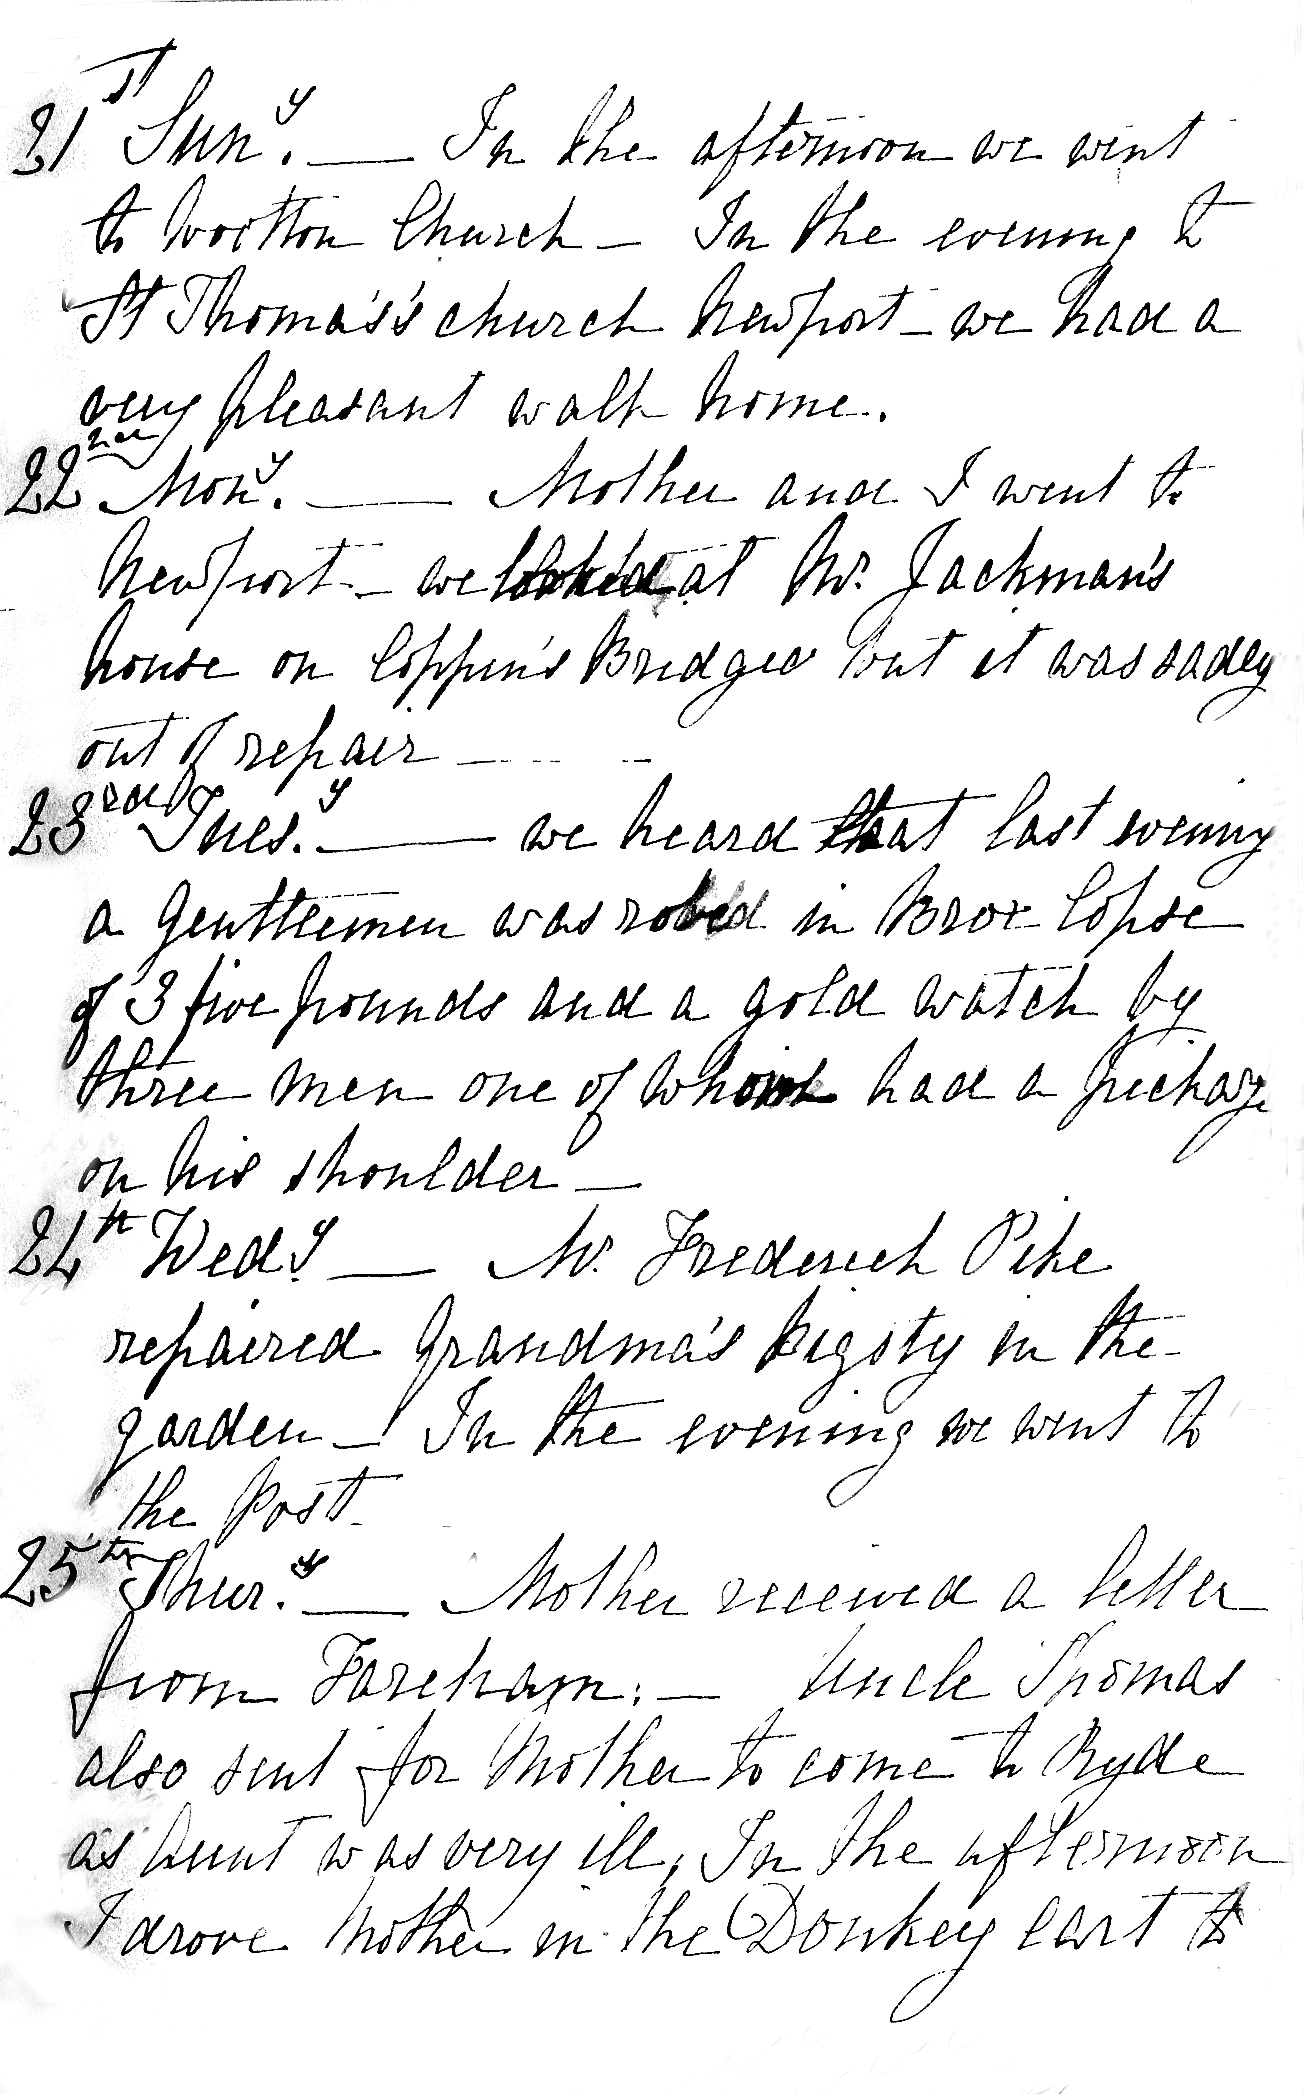 21st Suny. — In the afternoon we went
to Wootton Church — In the evening to
St Thomas's church Newport — we had a
very pleasant walk home.
22nd Mony. — Mother and I went to
Newport — we looked at Mr. Jackman's
house on Coppin's Bridge but it was sadly
out of repair —
23rd Tues.y — we heard that last evening
a Gentlemen was robed in Brox Copse
of 3 five pounds and a gold watch by
three men one of whom had a
on his shoulder —
24th Wed.y — Mr. Frederick Pike
repaired Grandma's Pigsty in the
garden — In the evening we went to
the Post
25th Thur.y — Mother received a letter
from Fareham: — Uncle Thomas
also sent for Mother to come to Ryde
as Aunt was very ill, In the afternoon
I drove Mother in the Donkey cart to